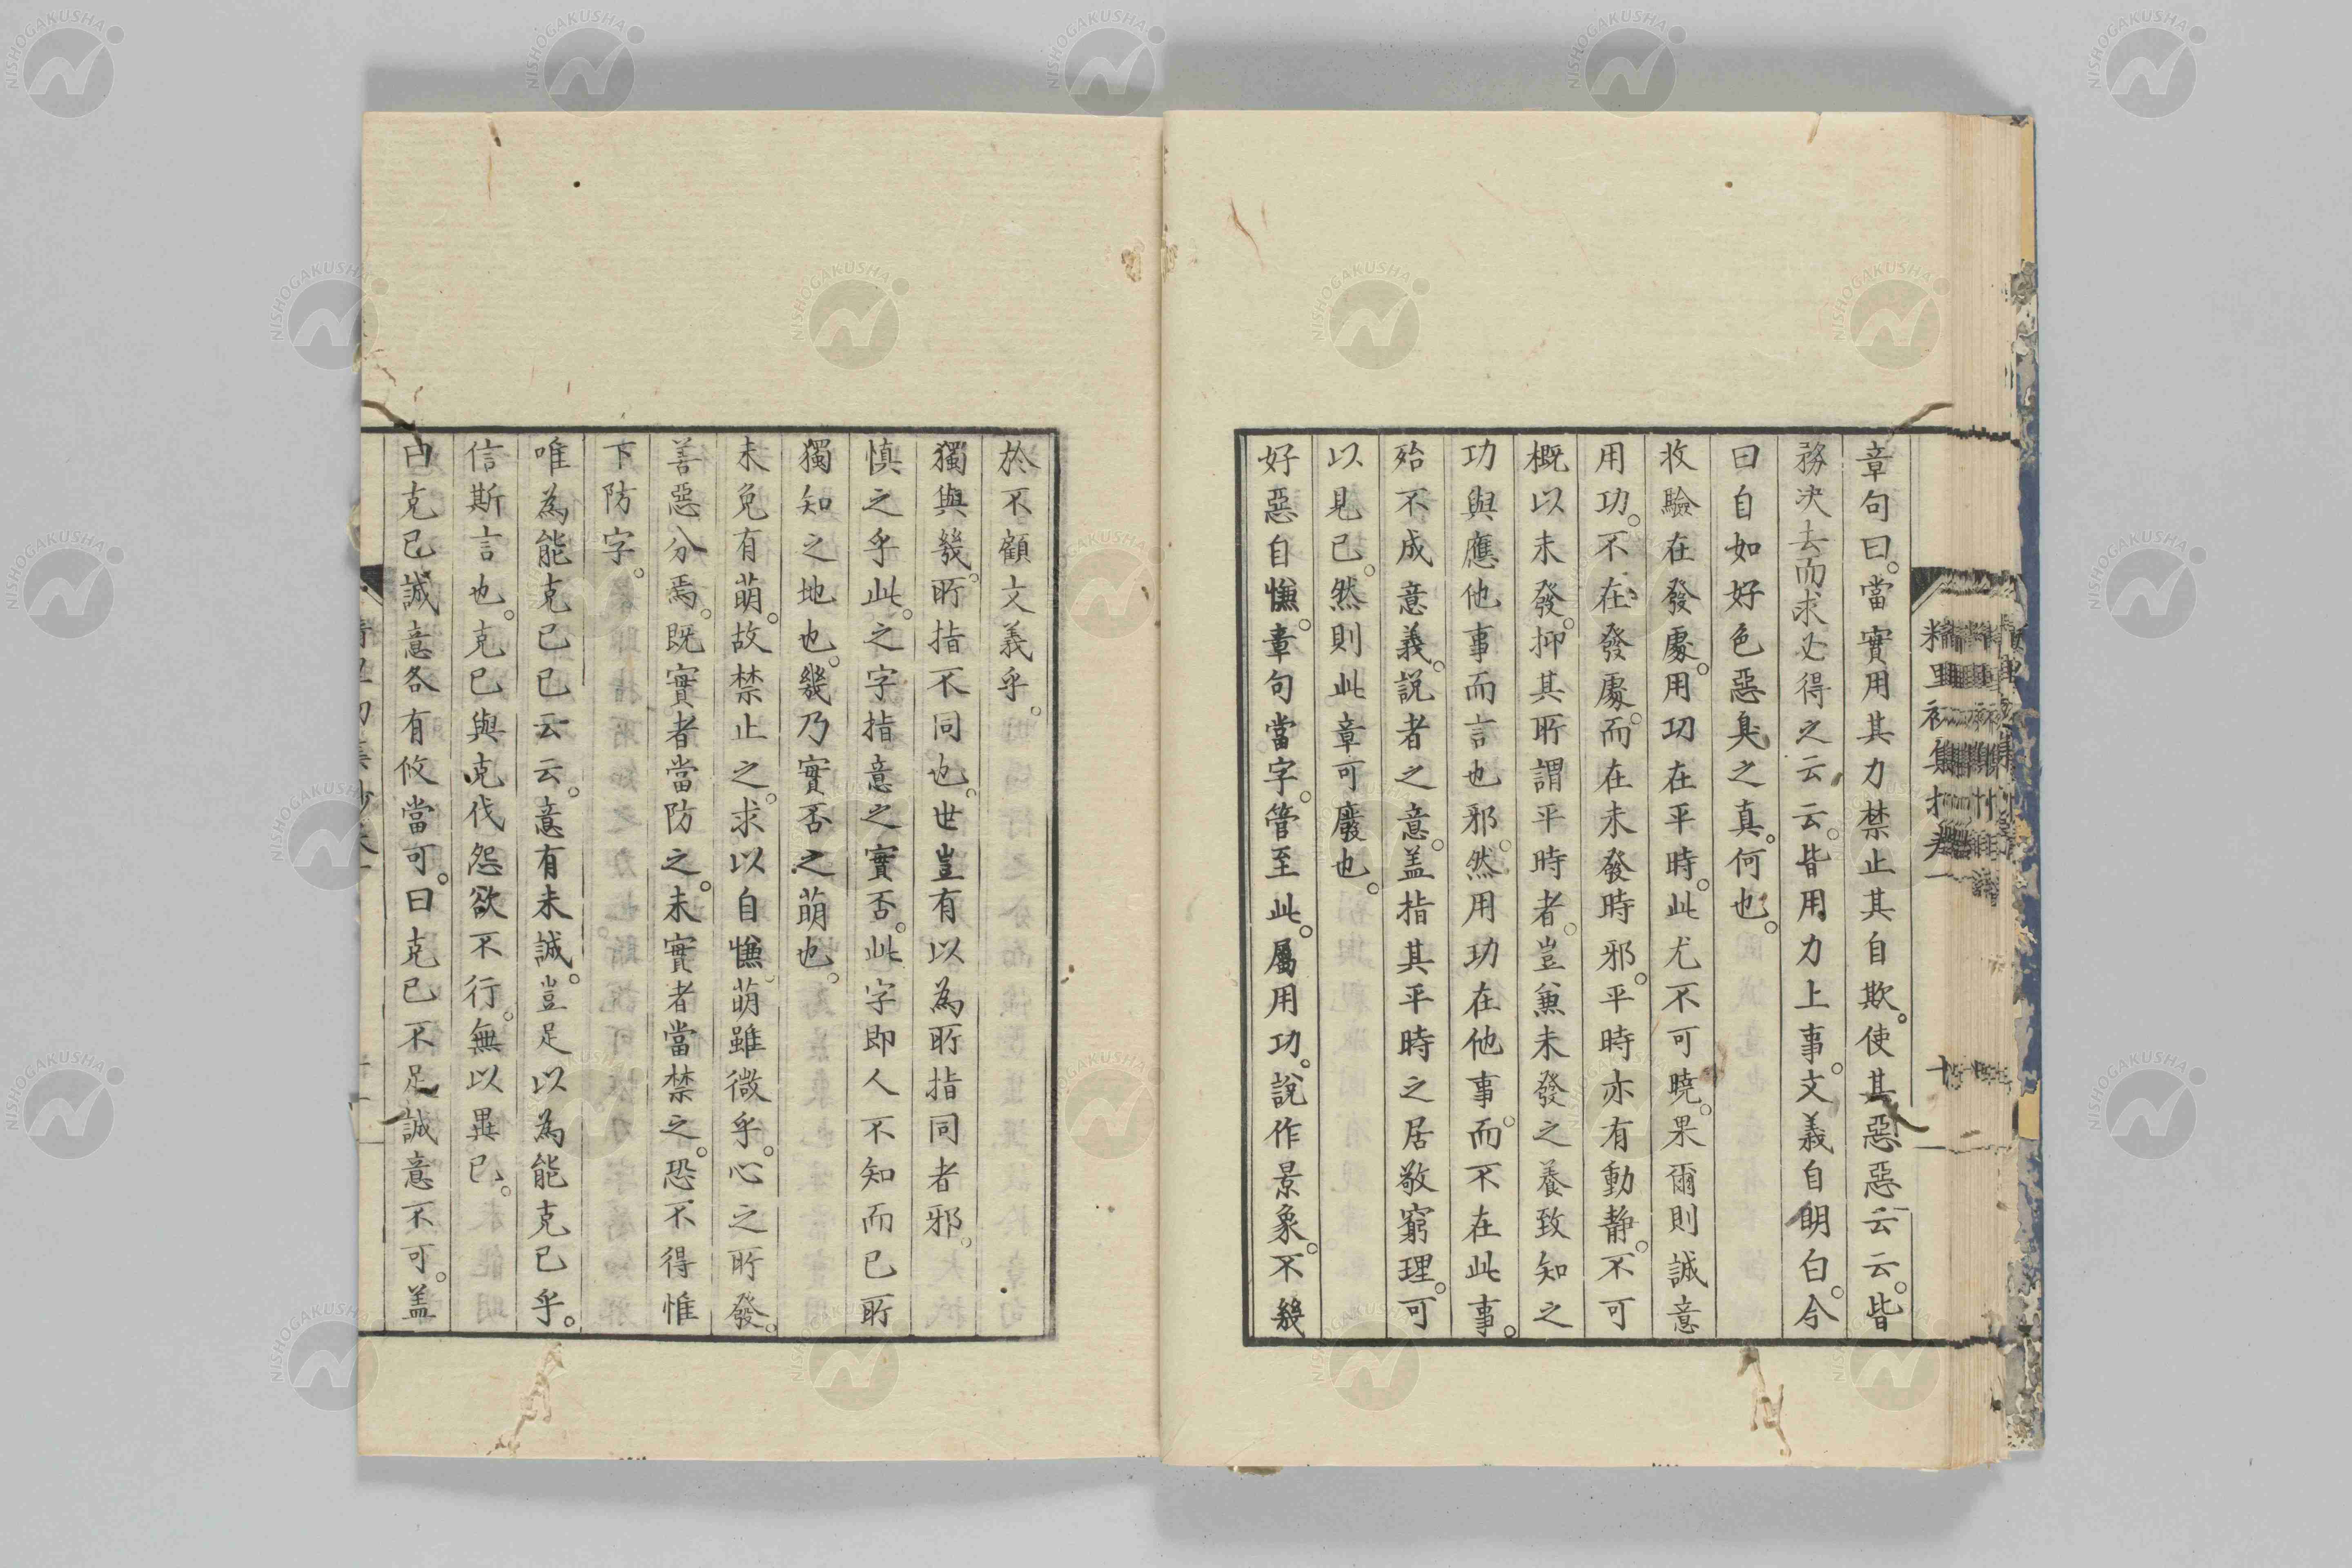 章句曰。當實用其力禁止其自欺。使其惡惡云云。皆
務决去而求必得之云云。皆用力上事。文義自明白。今
曰自如好色惡臭之真。何也。
收驗在發處。用功在平時。此尤不可曉。果爾則誠意
用功。不在發處。而在未發時邪。平時亦有動静。不可
概以未發。抑其所謂平時者。豈兼未發之養致知之
功與應他事而言也邪。然用功在他事。而不在此事。
殆不成意義。說者之意。盖指其平時之居敬窮理。可
以見已。然則此章可廢也。
好惡自慊。章句當字。管至此。屬用功。說作景象。不幾
於不顧文義乎。
獨與幾。所指不同也。世豈有以為所指同者邪。
慎之乎此。之字指意之實否。此字即人不知而已所
獨知之地也。幾乃實否之萌也。
未免有萌。故禁止之。求以自慊。萌雖微乎。心之所發。
善惡分焉。既實者當防之。未實者當禁之。恐不得惟
下防字。
唯為能克已已云云。意有未誠。豈足以為能克已乎。
信斯言也。克已與克伐怨欲不行。無以異已。
曰克已誠意各有攸當可。曰克已不足誠意不可。盖
NISHOGAKUSHA